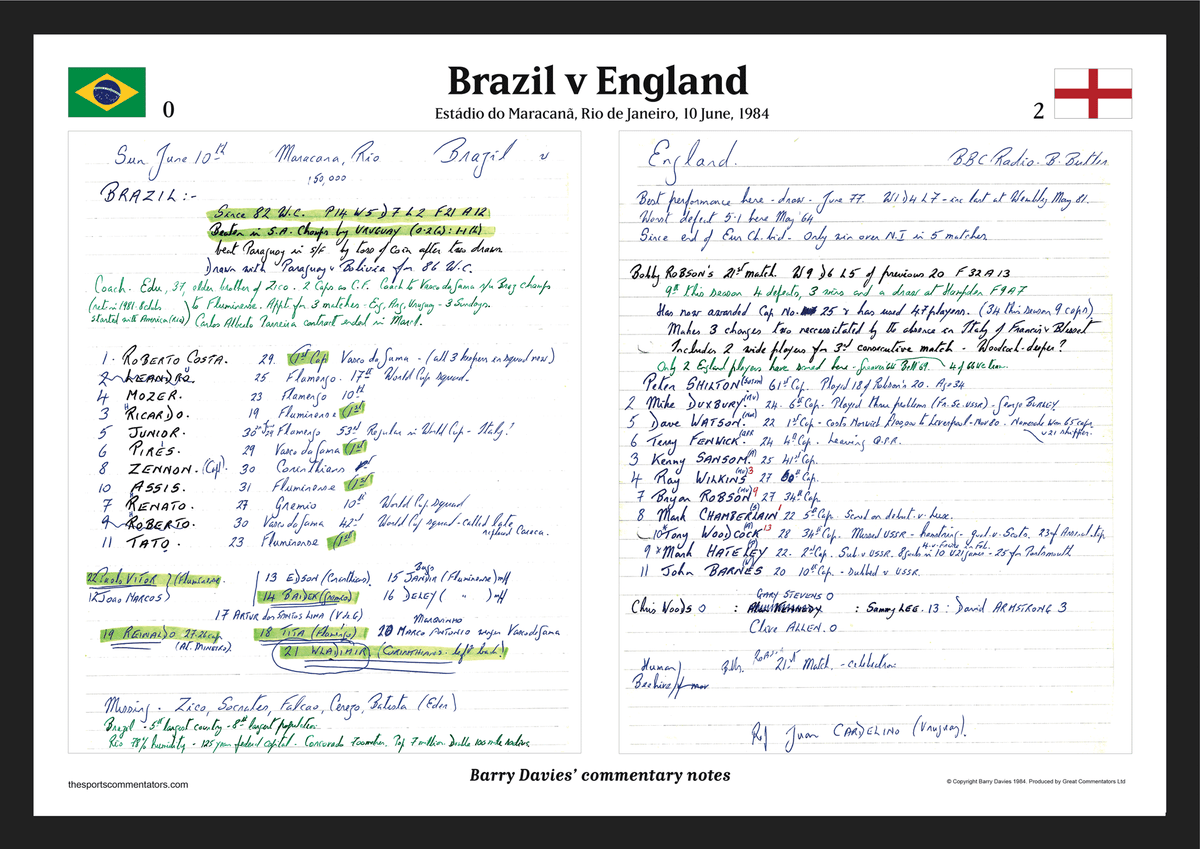 Brazil v England
Estádio do Maracanã, Rio de Janeiro, 10 June, 1984
0
2
Sun. June 10th Maracana, Rio Brazil v
150,000
BRAZIL:-
Since 82 W.C. P14 W5 D7 L2 F21 A12
Beaten in S.A. Champs by URUGUAY (0-2(a): 1-1(h))
beat Paraguay in s/f by toss of coin after two draws
Drawn with Paraguay & Bolivia for 86 W.C.
Coach. Edu, 37, older brother of Zico. 2 Caps as C.F. Coach to Vasco da Gama s/u Braz champs
to Fluminense. Appt. for 3 matches - Eng, Arg, Uruguay - 3 Sundays.
started with America (Rio)
Carlos Alberto Parreira contract ended in March.
1. ROBERTO COSTA. 29. (1st Cap) Vasco da Gama - (all 3 keepers in squad now)
2 LEANDRO. 25 Flamengo. 17th World Cup squad.
4 MOZER. 23 Flamengo 10th
3 RICARDO. 19 Fluminense (1st)
5 JUNIOR. 30 Flamengo 53rd Regular in World Cup - Italy?
6 PIRES. 29 Vasco da Gama (1st)
8 ZENNON. (Capt). 30 Corinthians
10 ASSIS. 31 Fluminense (1st)
7 RENATO. 27 Gremio 10th World Cup squad
9 ROBERTO. 30 Vasco da Gama 42nd World Cup squad - called late
replaced Careca.
11 TATO. 23 Fluminense (1st)
22 Paulo VITOR (Fluminense.
13 EDSON (Corinthians). 15 JANDIR (Fluminense) m/f
12 JOAO MARCOS)
14 BAIDEK (Gremio) 16 DELEY ( " ) m/f
17 ARTUR dos SANTOS LIMA (V da G)
19 REINALDO 27. 26 cap
(At. MINEIRO).
18 TITA (Flamengo) 20 MARCO ANTONIO winger Vasco da Gama
21 WLADIMIR (CORINTHIANS. left back)
Missing. Zico, Socrates, Falcao, Cerezo, Batista (Eder)
Brazil - 5th largest country - 8th largest population
Rio 78% humidity - 125 year federal capital. Corcovado 700 metres. Pop 7 million
England. BBC Radio. B. Butler
Best performance here - draw - June 77. W1 D4 L7 - inc last at Wembley May 81.
Worst defeat 5-1 here May '64
Since end of Eur Ch. bid. Only win over N.I in 5 matches
Bobby ROBSON'S 21st match. W9 D6 L5 of previous 20 F32 A13
9th this season 4 defeats, 3 wins and a draw at Hampden F9 A7
Has now awarded Cap No. 25 & has used 47 players. (34 this season 9 caps)
Makes 3 changes two necessitated by the absence in Italy of Francis & Blissett
Includes 2 wide players for 3rd consecutive match - Woodcock deeper?
Only 2 England players have scored here - Greaves 64 Bell 69.
Peter SHILTON 61st Cap. Played 18 of Robson's 20. Age 34
2 Mike DUXBURY. 24. 6th Cap. Played three problems (Fr. Sc. USSR).
5 Dave WATSON. 22 1st Cap - costs Norwich £100,000 to Liverpool - Nov 80. Namesake won 65 caps
U21 skipper.
6 Terry FENWICK. 24 4th Cap. Leaving Q.P.R.
3 Kenny SANSOM. 25 41st Cap.
4 Ray WILKINS 3 27 60th Cap.
7 Bryan ROBSON 9 27 34th Cap.
8 Mark CHAMBERLAIN 1 22 5th Cap. Scored on debut v. Lux.
10 Tony WOODCOCK 13 28 34th Cap. Missed USSR - hamstring - goal v. Scots. 23 for Arsenal
9 Mark HATELEY 22. 2nd Cap. Sub v USSR. 8 goals in 10 U21 games - 25 for Portsmouth
11 John BARNES 20 10th Cap. - Dubbed v USSR
GARY STEVENS 0
Chris Woods 0 : Alan KENNEDY : Sammy LEE. 13 : David ARMSTRONG 3
Clive ALLEN. 0
Human
21st Match. - celebration
Beehive
Ref Juan CARDELINO (Uruguay).
Barry Davies' commentary notes
thesportscommentators.com
© Copyright Barry Davies 1984. Produced by Great Commentators Ltd